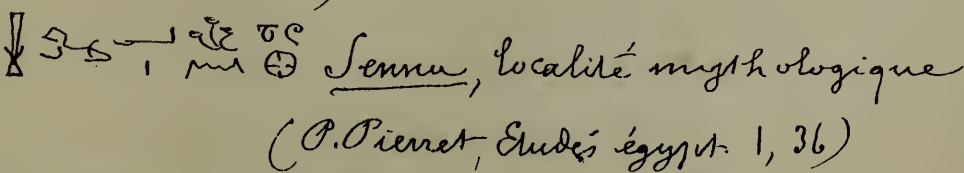 Sennu, localité mythologique
(P. Pierret, Etudes égypt. 1, 36)